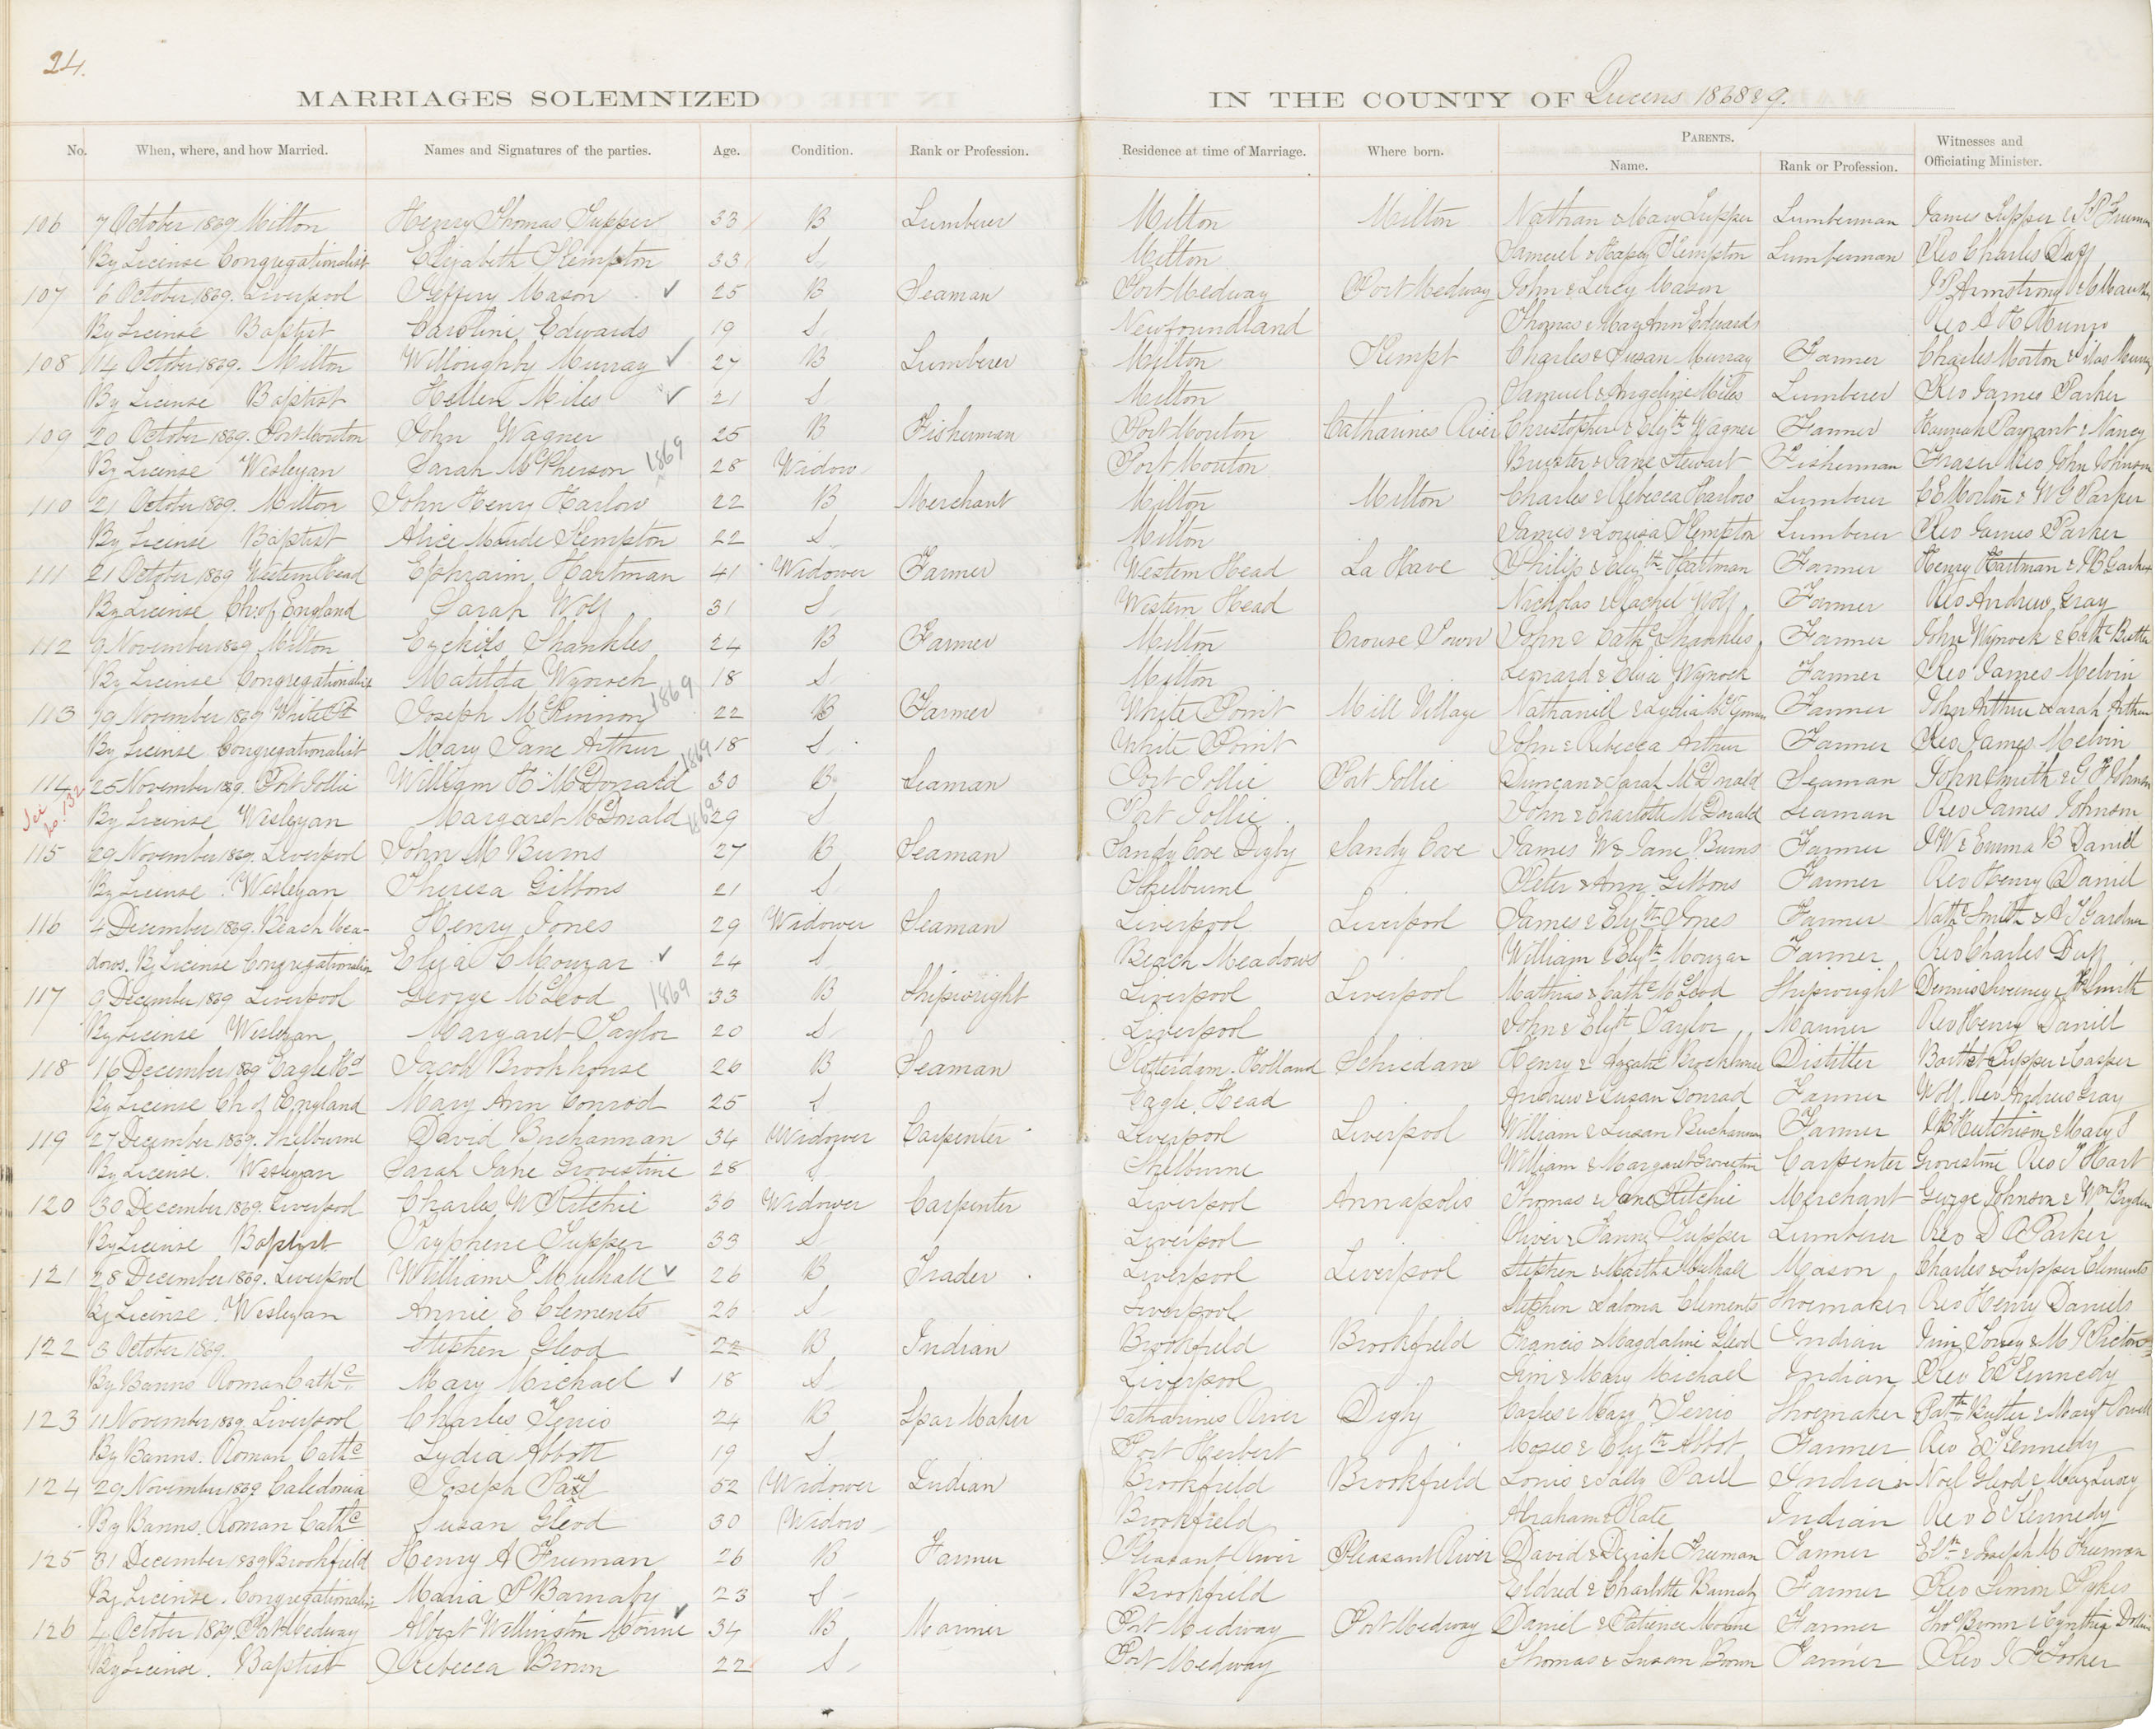 24.
MARRIAGES SOLEMNIZED IN THE COUNTY OF Queens 1868 & 9.
No. When, where, and how Married. Names and Signatures of the parties. Age. Condition. Rank or Profession. Residence at time of Marriage. Where born. PARENTS. Name. Rank or Profession. Witnesses and Officiating Minister.
106 7 October 1869 Milton Henry Thomas Tupper 33 B Lumberer Milton Milton Nathan & Mary Tupper Lumberman James Tupper & Freeman
By License Congregationalist Elizabeth Kempton 33 S Milton Samuel & Kempton Lumberman Rev Charles Duff
107 6 October 1869. Liverpool Jeffery Mason 25 B Seaman Port Medway Port Medway John & Lucy Mason Armstrong &
By License Baptist Caroline Edwards 19 S Newfoundland Thomas & Mary Ann Edwards Rev Munro
108 14 October 1869. Milton Willoughby Murray 27 B Lumberer Milton Kempt Charles & Susan Murray Farmer Charles Morton & Silas Murray
By License Baptist Hellen Miles 21 S Milton Samuel & Angeline Miles Lumberer Rev James Parker
109 20 October 1869. Port Mouton John Wagner 25 B Fisherman Port Mouton Catharines River Christopher & Elizth Wagner Farmer Hannah Payzant & Nancy
By License Wesleyan Sarah McPherson 1869 28 Widow Port Mouton Brewster & Jane Stewart Fisherman Fraser Rev John Johnson
110 21 October 1869. Milton John Henry Harlow 22 B Merchant Milton Milton Charles & Rebecca Harlow Lumberer C E Morton & W G Parker
By License Baptist Alice Maude Kempton 22 S Milton James & Louisa Kempton Lumberer Rev James Parker
111 21 October 1869 Western Head Ephraim Hartman 41 Widower Farmer Western Head La Have Philip & Elizth Hartman Farmer Henry Hartman &
By License Ch of England Sarah Wolf 31 S Western Head Nicholas & Rachel Wolf Farmer Rev Andrew Gray
112 9 November 1869 Milton Ezekiel Shankles 24 B Farmer Milton Crouse Town John & Cathe Shankles Farmer John Wynock & Cathe
By License Congregationalist Matilda Wynoch 18 S Milton Leonard & Eliza Wynoch Farmer Rev James Melvin
113 19 November 1869 White Pt Joseph McKinnon 1869 22 B Farmer White Point Mill Village Nathaniell & Lydia Farmer John Arthur & Sarah Arthur
By License Congregationalist Mary Jane Arthur 18 S White Point John & Rebecca Arthur Farmer Rev James Melvin
114 25 November 1869. Port Jollie William H McDonald 1869 30 B Seaman Port Jollie Port Jollie Duncan & Sarah McDonald Seaman John Smith & G F Johnson
See No. 132 By License Wesleyan Margaret McDonald 1869 29 S Port Jollie John & Charlotte McDonald Seaman Rev James Johnson
115 29 November 1869. Liverpool John M Burns 27 B Seaman Sandy Cove Digby Sandy Cove James W & Jane Burns Farmer J W & Emma B Daniel
By License Wesleyan Theresa Gibbons 21 S Shelburne Peter & Ann Gibbons Farmer Rev Henry Daniel
116 4 December 1869. Beach Mea- Henry Jones 29 Widower Seaman Liverpool Liverpool James & Elizth Jones Farmer Smith & Gardner
dows. By License Congregationalist Eliza C Mouzar 24 S Beach Meadows William & Elizth Mouzar Farmer Rev Charles Duff
117 9 December 1869 Liverpool George McLeod 1869 33 B Shipwright Liverpool Liverpool Mathias & Cathe McLeod Shipwright Dennis Sweeney & Smith
By License Wesleyan Margaret Taylor 20 S Liverpool John & Elizth Taylor Mariner Rev Henry Daniel
118 16 December 1869 Eagle Hd Jacob Brookhouse 26 B Seaman Rotterdam. Holland Schiedam Henry & Agathe Brookhouse Distiller Bartlet Tupper & Casper
By License Ch of England Mary Ann Conrod 25 S Eagle Head Andrew & Susan Conrad Farmer Wolf. Rev Andrew Gray
119 27 December 1869. Shelburne David Buchannan 34 Widower Carpenter Liverpool Liverpool William & Susan Buchannan Farmer Hutchison & Mary J
By License. Wesleyan Sarah Jane Grovestine 28 S Shelburne William & Margaret Grovestine Carpenter Grovestine Rev T Hart
120 30 December 1869. Liverpool Charles W Ritchie 30 Widower Carpenter Liverpool Annapolis Thomas & Jane Ritchie Merchant George Johnson & Wm Bryden
By License Baptist Tryphene Tupper 33 S Liverpool Oliver & Fanny Tupper Lumberer Rev D Parker
121 28 December 1869. Liverpool William J Mulhall 26 B Trader Liverpool Liverpool Stephen & Martha Mulhall Mason Charles & Tupper Clements
By License Wesleyan Annie E Clements 26 S Liverpool Stephen Saloma Clements Shoemaker Rev Henry Daniels
122 3 October 1869. Stephen Glode 22 B Indian Brookfield Brookfield Francis & Magdaline Glode Indian
By Banns Roman Cathc Mary Michael 18 S Liverpool Jim & Mary Michael Indian Rev E Kennedy
123 11 November 1869. Liverpool Charles Terrio 24 B Spar Maker Catharines River Digby Carles & Mary Terrio Shoemaker Butler & Mary Powell
By Banns. Roman Cathc Lydia Abbott 19 S Port Herbert Moses & Elizth Abbot Farmer Rev E Kennedy
124 29 November 1869 Caledonia Joseph Paul 52 Widower Indian Brookfield Brookfield Louis & Sally Paull Indian Noel Glode & Mary Luxey
By Banns. Roman Cathc Susan Glode 30 Widow Brookfield Abraham & Kate Indian Rev E Kennedy
125 31 December 1869 Brookfield Henry A Freeman 26 B Farmer Pleasant River Pleasant River David & Deziah Freeman Farmer & Joseph M Freeman
By License. Congregationalist Maria P Barnaby 23 S Brookfield Eldred & Charlotte Barnaby Farmer Rev Simon Sykes
126 4 October 1869. Port Medway Albert Wellington Morine 34 B Mariner Port Medway Port Medway Daniel & Patience Morine Farmer Thos Brown & Cynthia
By License. Baptist Rebecca Brown 22 S Port Medway Thomas & Susan Brown Farmer Rev